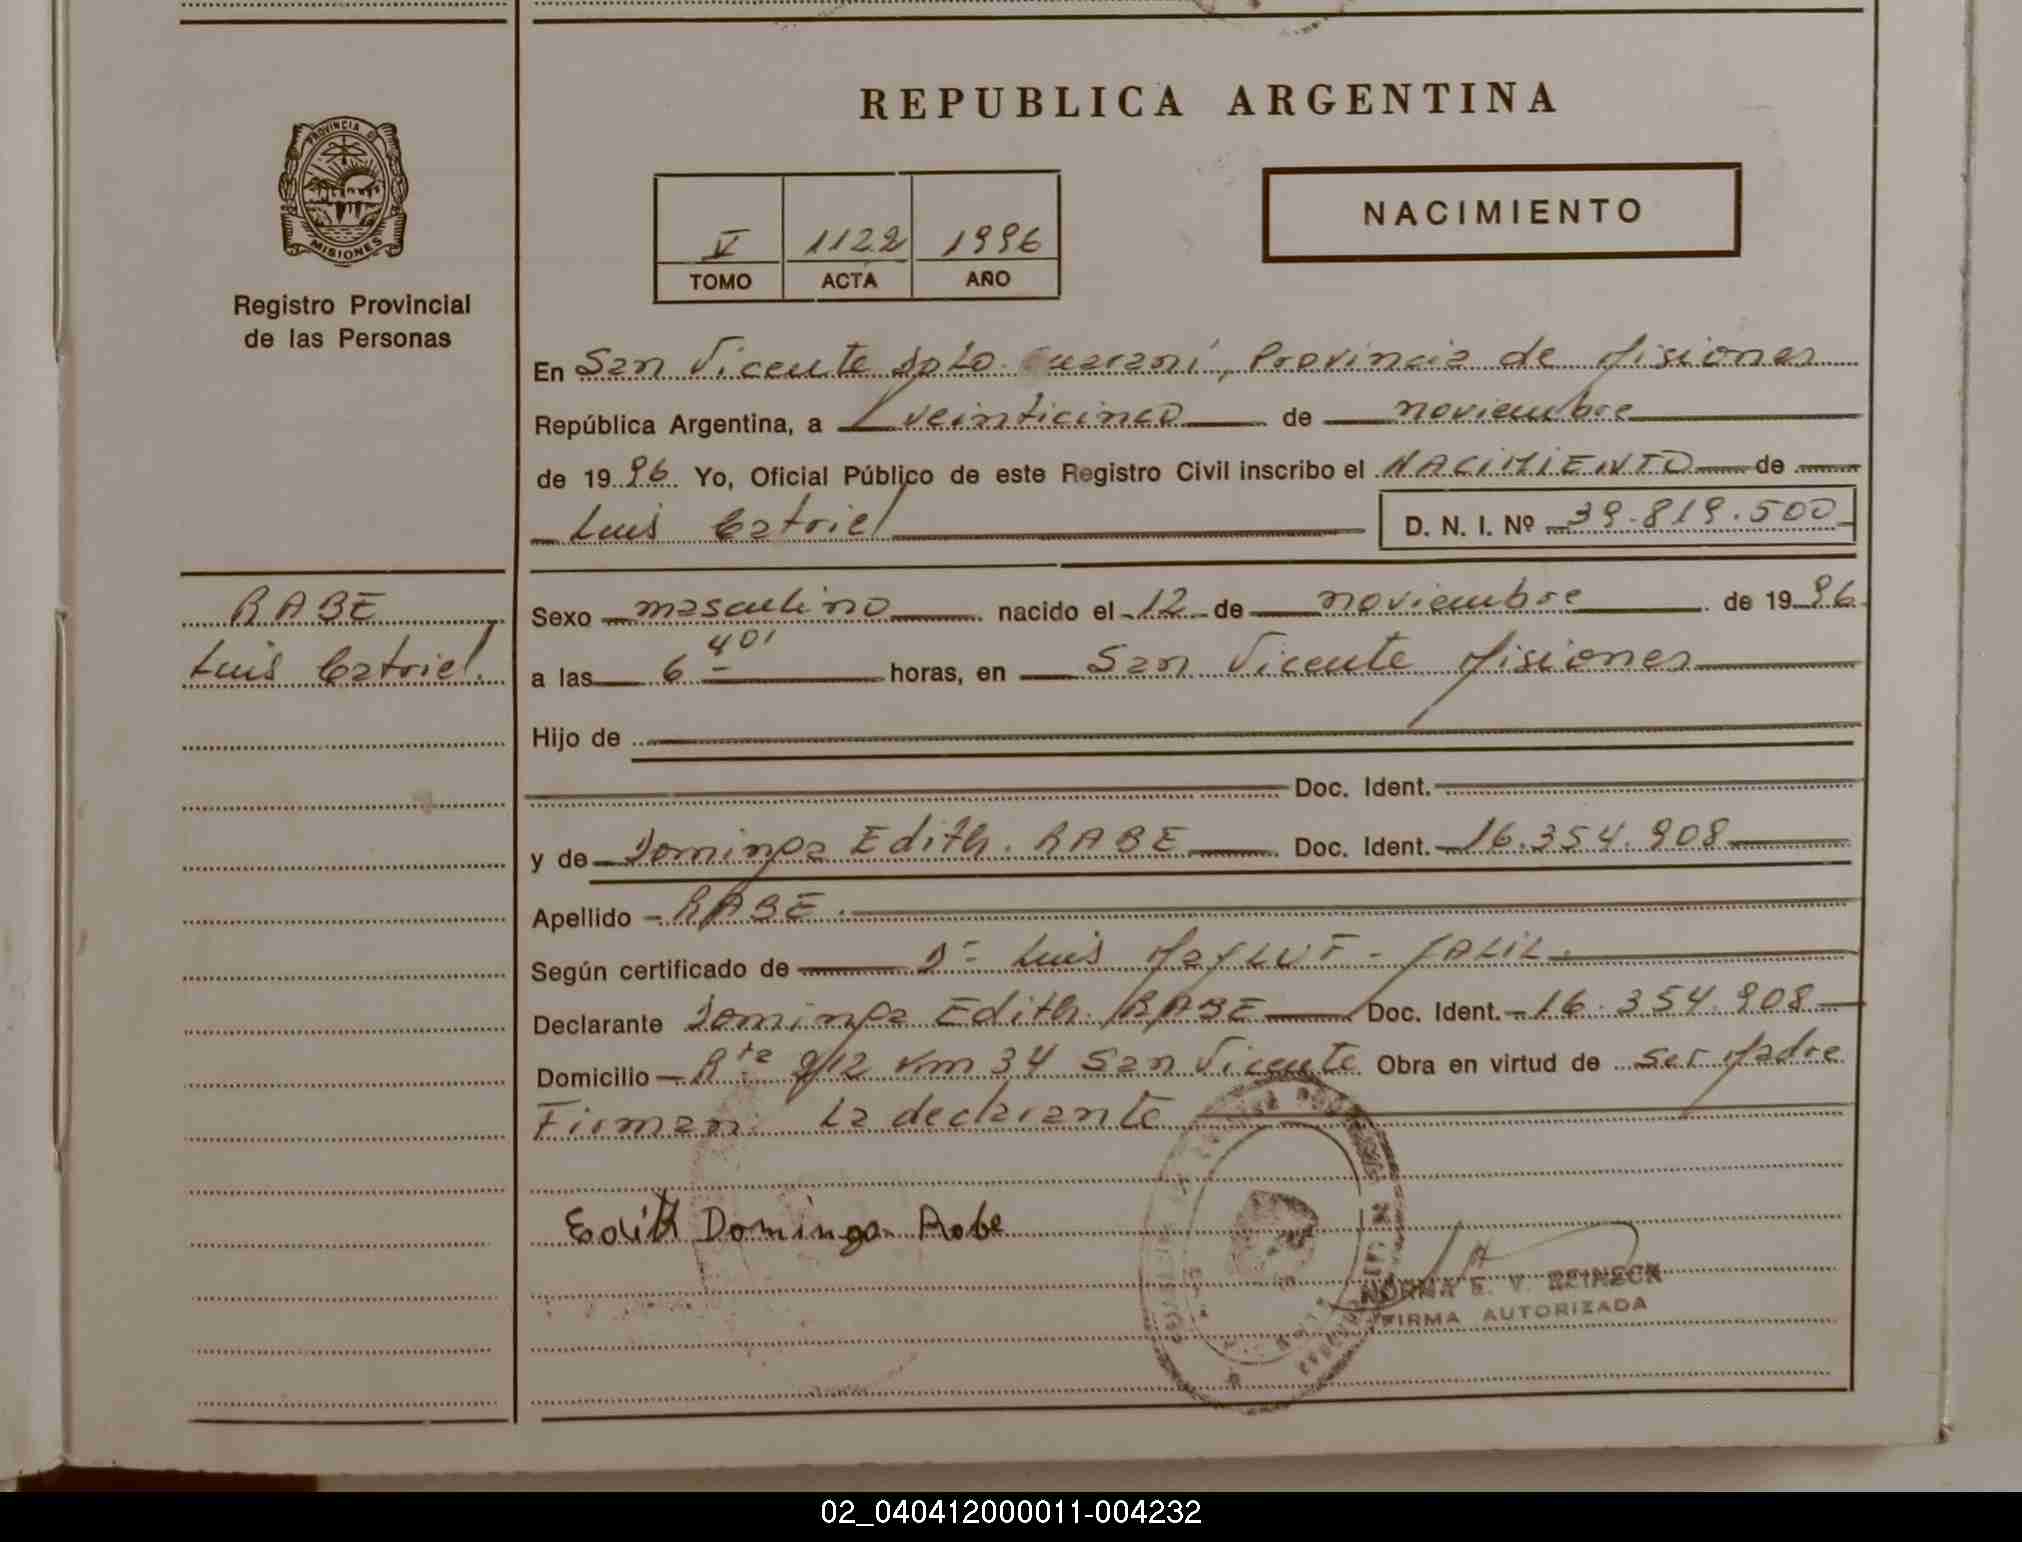 REPUBLICA ARGENTINA
PROVINCIA D
MISIONES
Registro Provincial
de las Personas
V 1122 1996
TOMO ACTA AÑO
NACIMIENTO
En San Vicente Dpto. Guaraní, Provincia de Misiones
República Argentina, a veinticinco de noviembre
de 1996 Yo, Oficial Público de este Registro Civil inscribo el NACIMIENTO de
Luis Catriel D. N. I. Nº 39.819.500
RABE
Luis Catriel.
Sexo masculino nacido el 12 de noviembre de 1996
a las 6 40' horas, en San Vicente Misiones
Hijo de
Doc. Ident.
y de Dominga Edith. RABE Doc. Ident. 16.354.908
Apellido RABE.
Según certificado de Dr Luis
Declarante Dominga Edith. RABE Doc. Ident. 16.354.908
Domicilio Rta 212 Km 34 San Vicente Obra en virtud de ser Madre
Firman: La declarante
Edith Dominga Rabe
NORMA E. V. REINECK
FIRMA AUTORIZADA
02_040412000011-004232